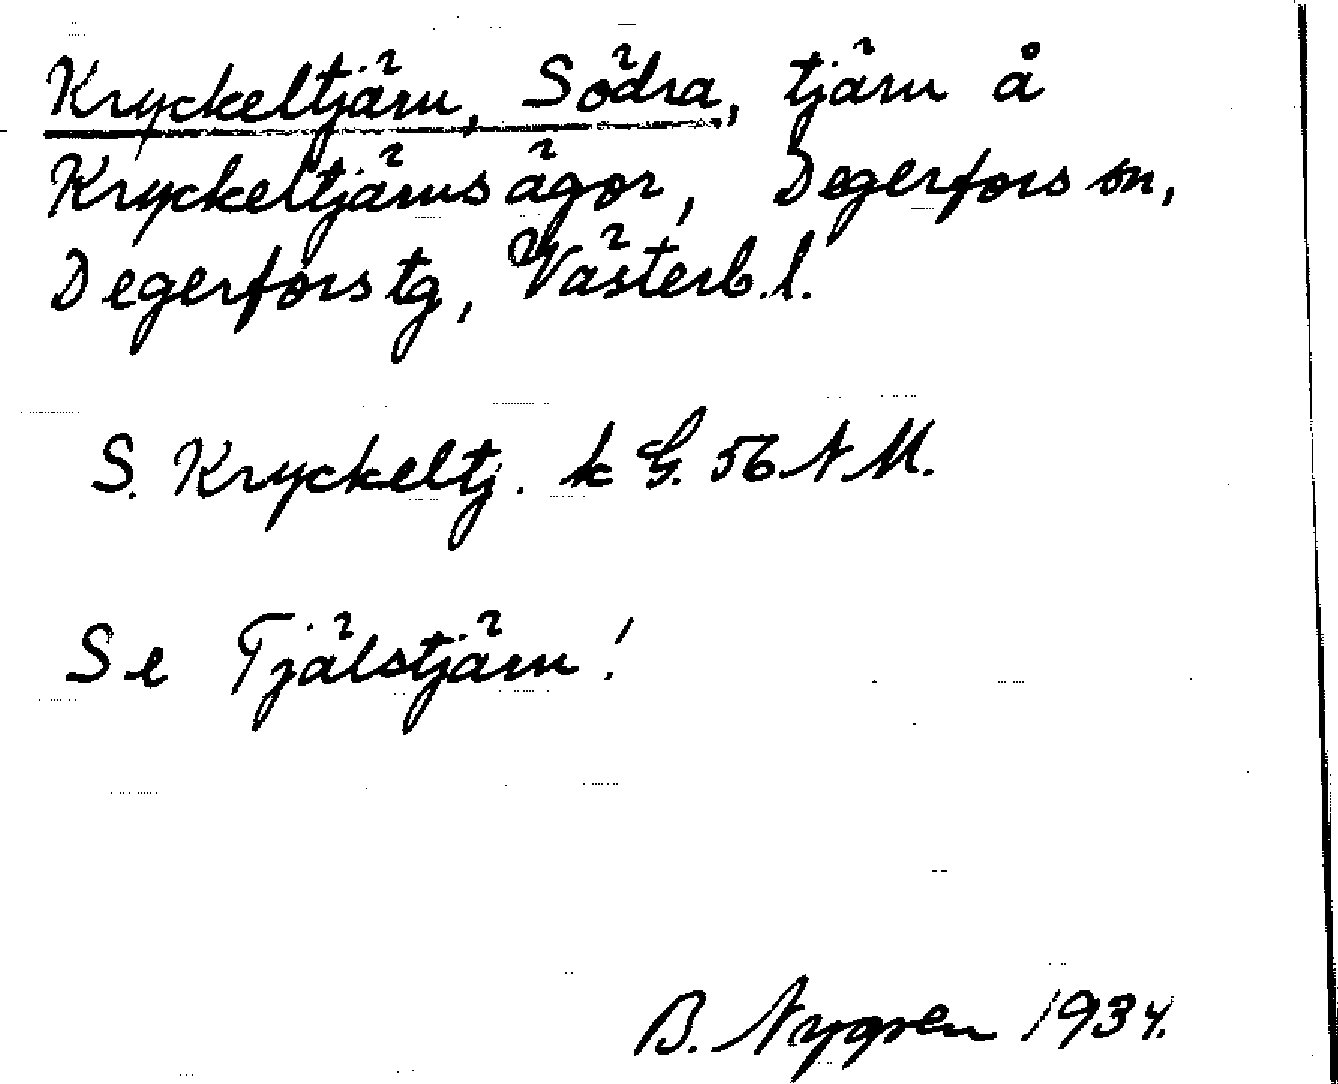 Kryckeltjärn, Södra, tjärn å
Kryckeltjärns ägor, Degerfors sn,
Degerfors tg, Västerb. l.
S. Kryckeltj. k G. 56 N M.
Se Tjälstjärn!
B. Nygren 1934.